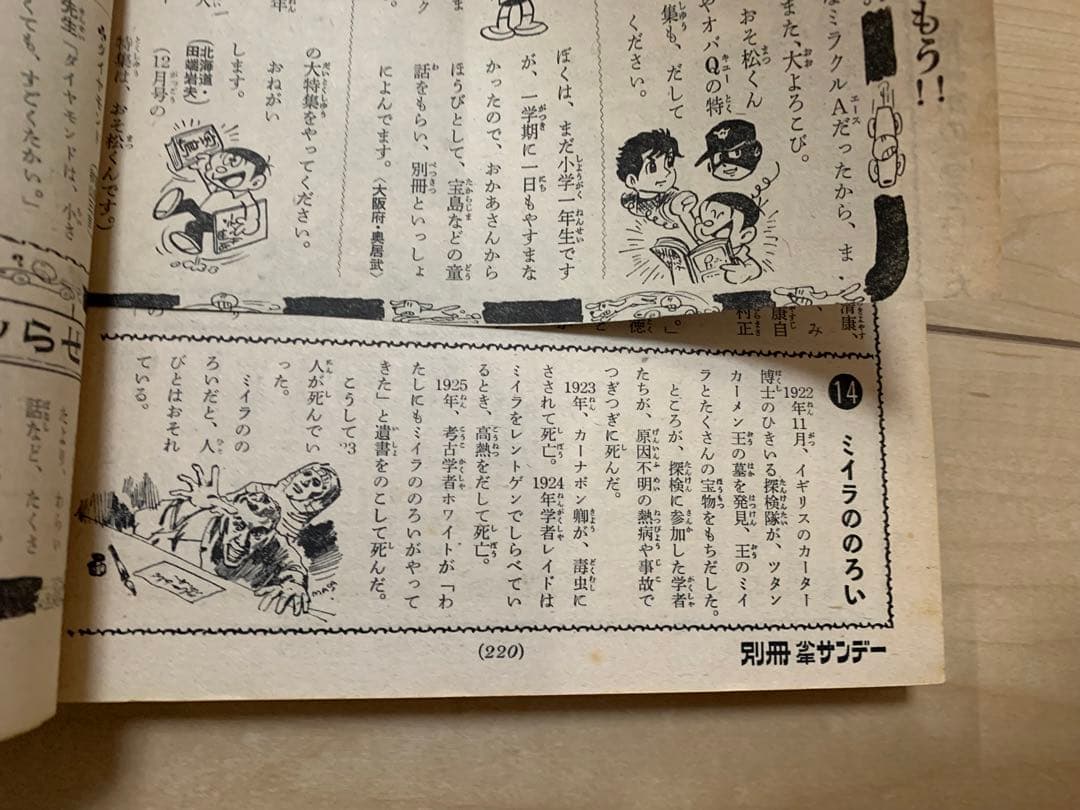 もう！！
なミラクルAだったから、ま
また、大よろこび。
おそ松くん
やオバQの特
集も、だして
ください。
ぼくは、まだ小学一年生です
が、一学期に一日もやすまな
かったので、おかあさんから
ほうびとして、宝島などの童
話をもらい、別冊といっしょ
によんでます。〈大阪府・奥居武〉
の大特集をやってください。
おねがい
します。
(北海道・田端岩夫)
(12月号の
特集は、おそ松くんです。)
先生「ダイヤモンドは、小さ
くても、すごくたかい。」
らせ
話など、たくさ
清康、
み
康自
村正
⑭ ミイラののろい
1922年11月、イギリスのカーター
博士のひきいる探検隊が、ツタン
カーメン王の墓を発見、王のミイ
ラとたくさんの宝物をもちだした。
ところが、探検に参加した学者
たちが、原因不明の熱病や事故で
つぎつぎに死んだ。
1923年、カーナボン卿が、毒虫に
さされて死亡。1924年学者レイドは
ミイラをレントゲンでしらべてい
るとき、高熱をだして死亡。
1925年、考古学者ホワイトが「わ
たしにもミイラののろいがやって
きた」と遺書をのこして死んだ。
こうして、23
人が死んでい
った。
ミイラのの
ろいだと、人
びとはおそれ
ている。
(220)
別冊少年サンデー